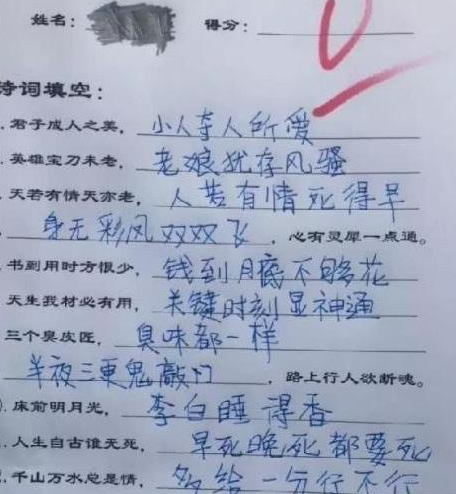 姓名： 得分：
诗词填空：
. 君子成人之美，小人夺人所爱
. 英雄宝刀未老，老娘犹存风骚
. 天若有情天亦老，人若有情死得早
. 身无彩凤双双飞，心有灵犀一点通。
. 书到用时方恨少，钱到月底不够花
天生我材必有用，关键时刻显神通
三个臭皮匠，臭味都一样
半夜三更鬼敲门，路上行人欲断魂。
). 床前明月光，李白睡得香
. 人生自古谁无死，早死晚死都要死
. 千山万水总是情，多给一分行不行